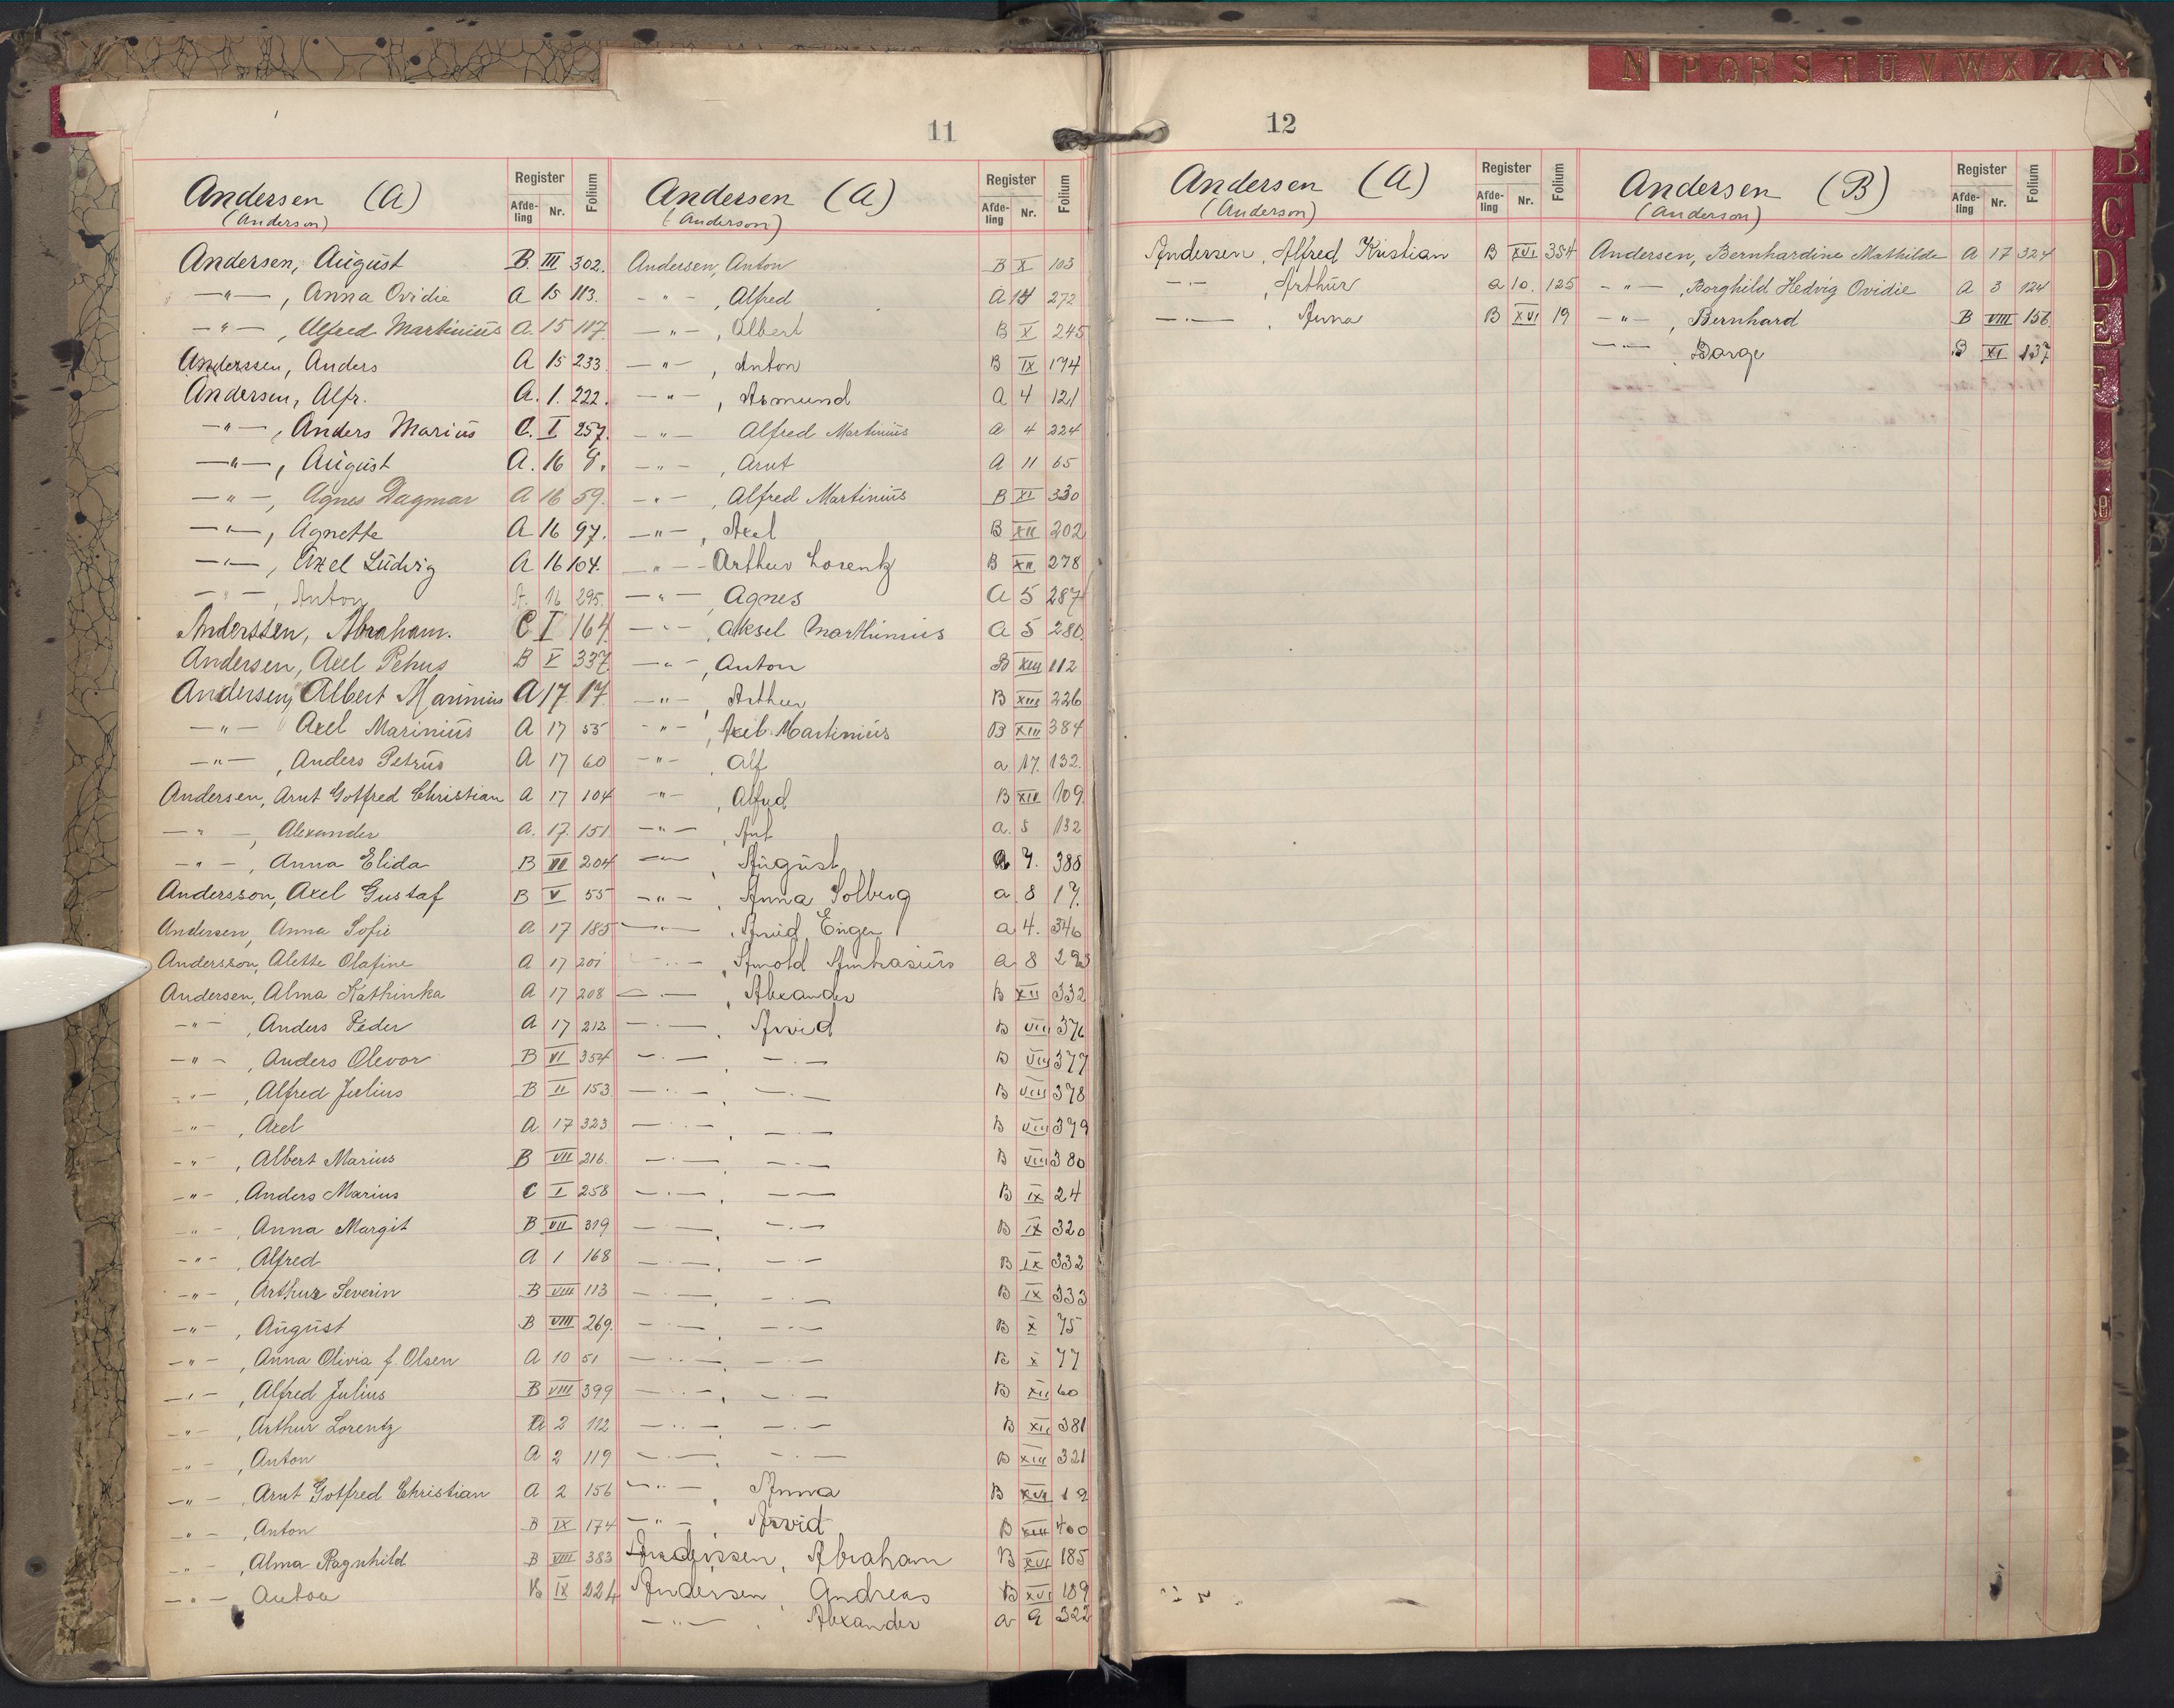 N P Q R S T U V W X Z Æ
B
C
D
E
F
11
Andersen (A)
(Anderson)
Register
Afde-
ling
Nr.
Folium
Andersen, August B. III 302.
—"—, Anna Ovidie A 15 113.
—"—, Alfred Martinius A. 15 117.
Anderssen, Anders A 15 233.
Andersen, Alfr. A. 1. 222.
—"—, Anders Marius C. I 257.
—"—, August A. 16 8.
—"—, Agnes Dagmar A 16 59.
—"—, Agnette A 16 97.
—"—, Axel Ludvig A 16 104.
—"—, Anton A. 16 295.
Anderssen, Abraham. C I 164
Andersen, Axel Petrus B V 337
Andersen, Albert Marinius A 17 17.
—"— Axel Marinius A 17 55
—"—, Anders Petrus A 17 60
Andersen, Arnt Gotfred Christian A 17 104
—"—, Alexander A. 17. 151
—"—, Anna Elida B VII 204
Andersson, Axel Gustaf B V 55
Andersen, Anna Sofie A 17 185
Andersson, Alette Olafine A 17 201
Andersen, Alma Kathinka A 17 208
—"—, Anders Peder A 17 212
—"—, Anders Olevor B VI 354
—"—, Alfred Julius B II 153
—"—, Axel A. 17 323
—"—, Albert Marius B VII 216.
—"—, Anders Marius C I 258
—"— Anna Margit B VII 319
—"—, Alfred A 1 168
—"—, Arthur Severin B VIII 113
—"—, August B VIII 269.
—"—, Anna Olivia f. Olsen A 10 51
—"—, Alfred Julius B VIII 399
—"—, Arthur Lorentz A 2 112
—"—, Anton A 2 119
—"—, Arnt Gotfred Christian A 2 156
—"—, Anton B IX 174
—"—, Alma Ragnhild B VIII 383
—"— Anton B IX 224
Andersen (A)
(Anderson)
Register
Afde-
ling
Nr.
Folium
Andersen, Anton B X 103
—"—, Alfred A 14 272
—"—, Albert B X 245
—"—, Anton B IX 174
—"—, Asmund A 4 121
—"— Alfred Martinius A 4 224
—"—, Arnt A 11 65
—"—, Alfred Martinius B XI 330
—"—, Axel B XII 202
—"— Arthur Lorentz B XII 278
—"—, Agnes A 5 287
—"—, Aksel Marthinius A 5 280.
—"—, Anton B XIII 112
—"—, Arthur B XIII 226
—"—, Axel Martinius B XIII 384
—"—, Alf a. 17. 132.
—"—, Alfred B XIII 109
—"—, Arnt a. 8 132
—"—, August a 7. 388
—"—, Anna Solberg a 8 17.
—"—, Arvid Enger a 4. 346
—"—, Arnold a 8 293
—"—, Alexander B XII 332
—"—, Arvid B VIII 376
—"—, —"— B VIII 377
—"—, —"— B VIII 378
—"—, —"— B VIII 379
—"—, —"— B VIII 380
—"—, —"— B IX 24
—"—, —"— B IX 320
—"—, —"— B IX 332
—"—, —"— B IX 333
—"—, —"— B X 75
—"—, —"— B X 77
—"—, —"— B XII 60
—"—, —"— B XII 381
—"—, —"— B XIII 321
—"—, Anna B XVI 19
—"—, Arvid B XIII 400
Anderssen, Abraham B XVI 185
Andersen, Andreas B XVI 189
—"—, Alexander a 9 322
12
Andersen (A)
(Anderson)
Register
Afde-
ling
Nr.
Folium
Andersen, Alfred Kristian B XVI 354
—"—, Arthur a 10. 125
—"—, Anna B XVI 19
Andersen (B)
(Anderson)
Register
Afde-
ling
Nr.
Folium
Andersen, Bernhardine Mathilde A 17 324
—"—, Borghild Hedvig Ovidie A 3 124
—"—, Bernhard B VIII 156
—"—, Borge B XI 137